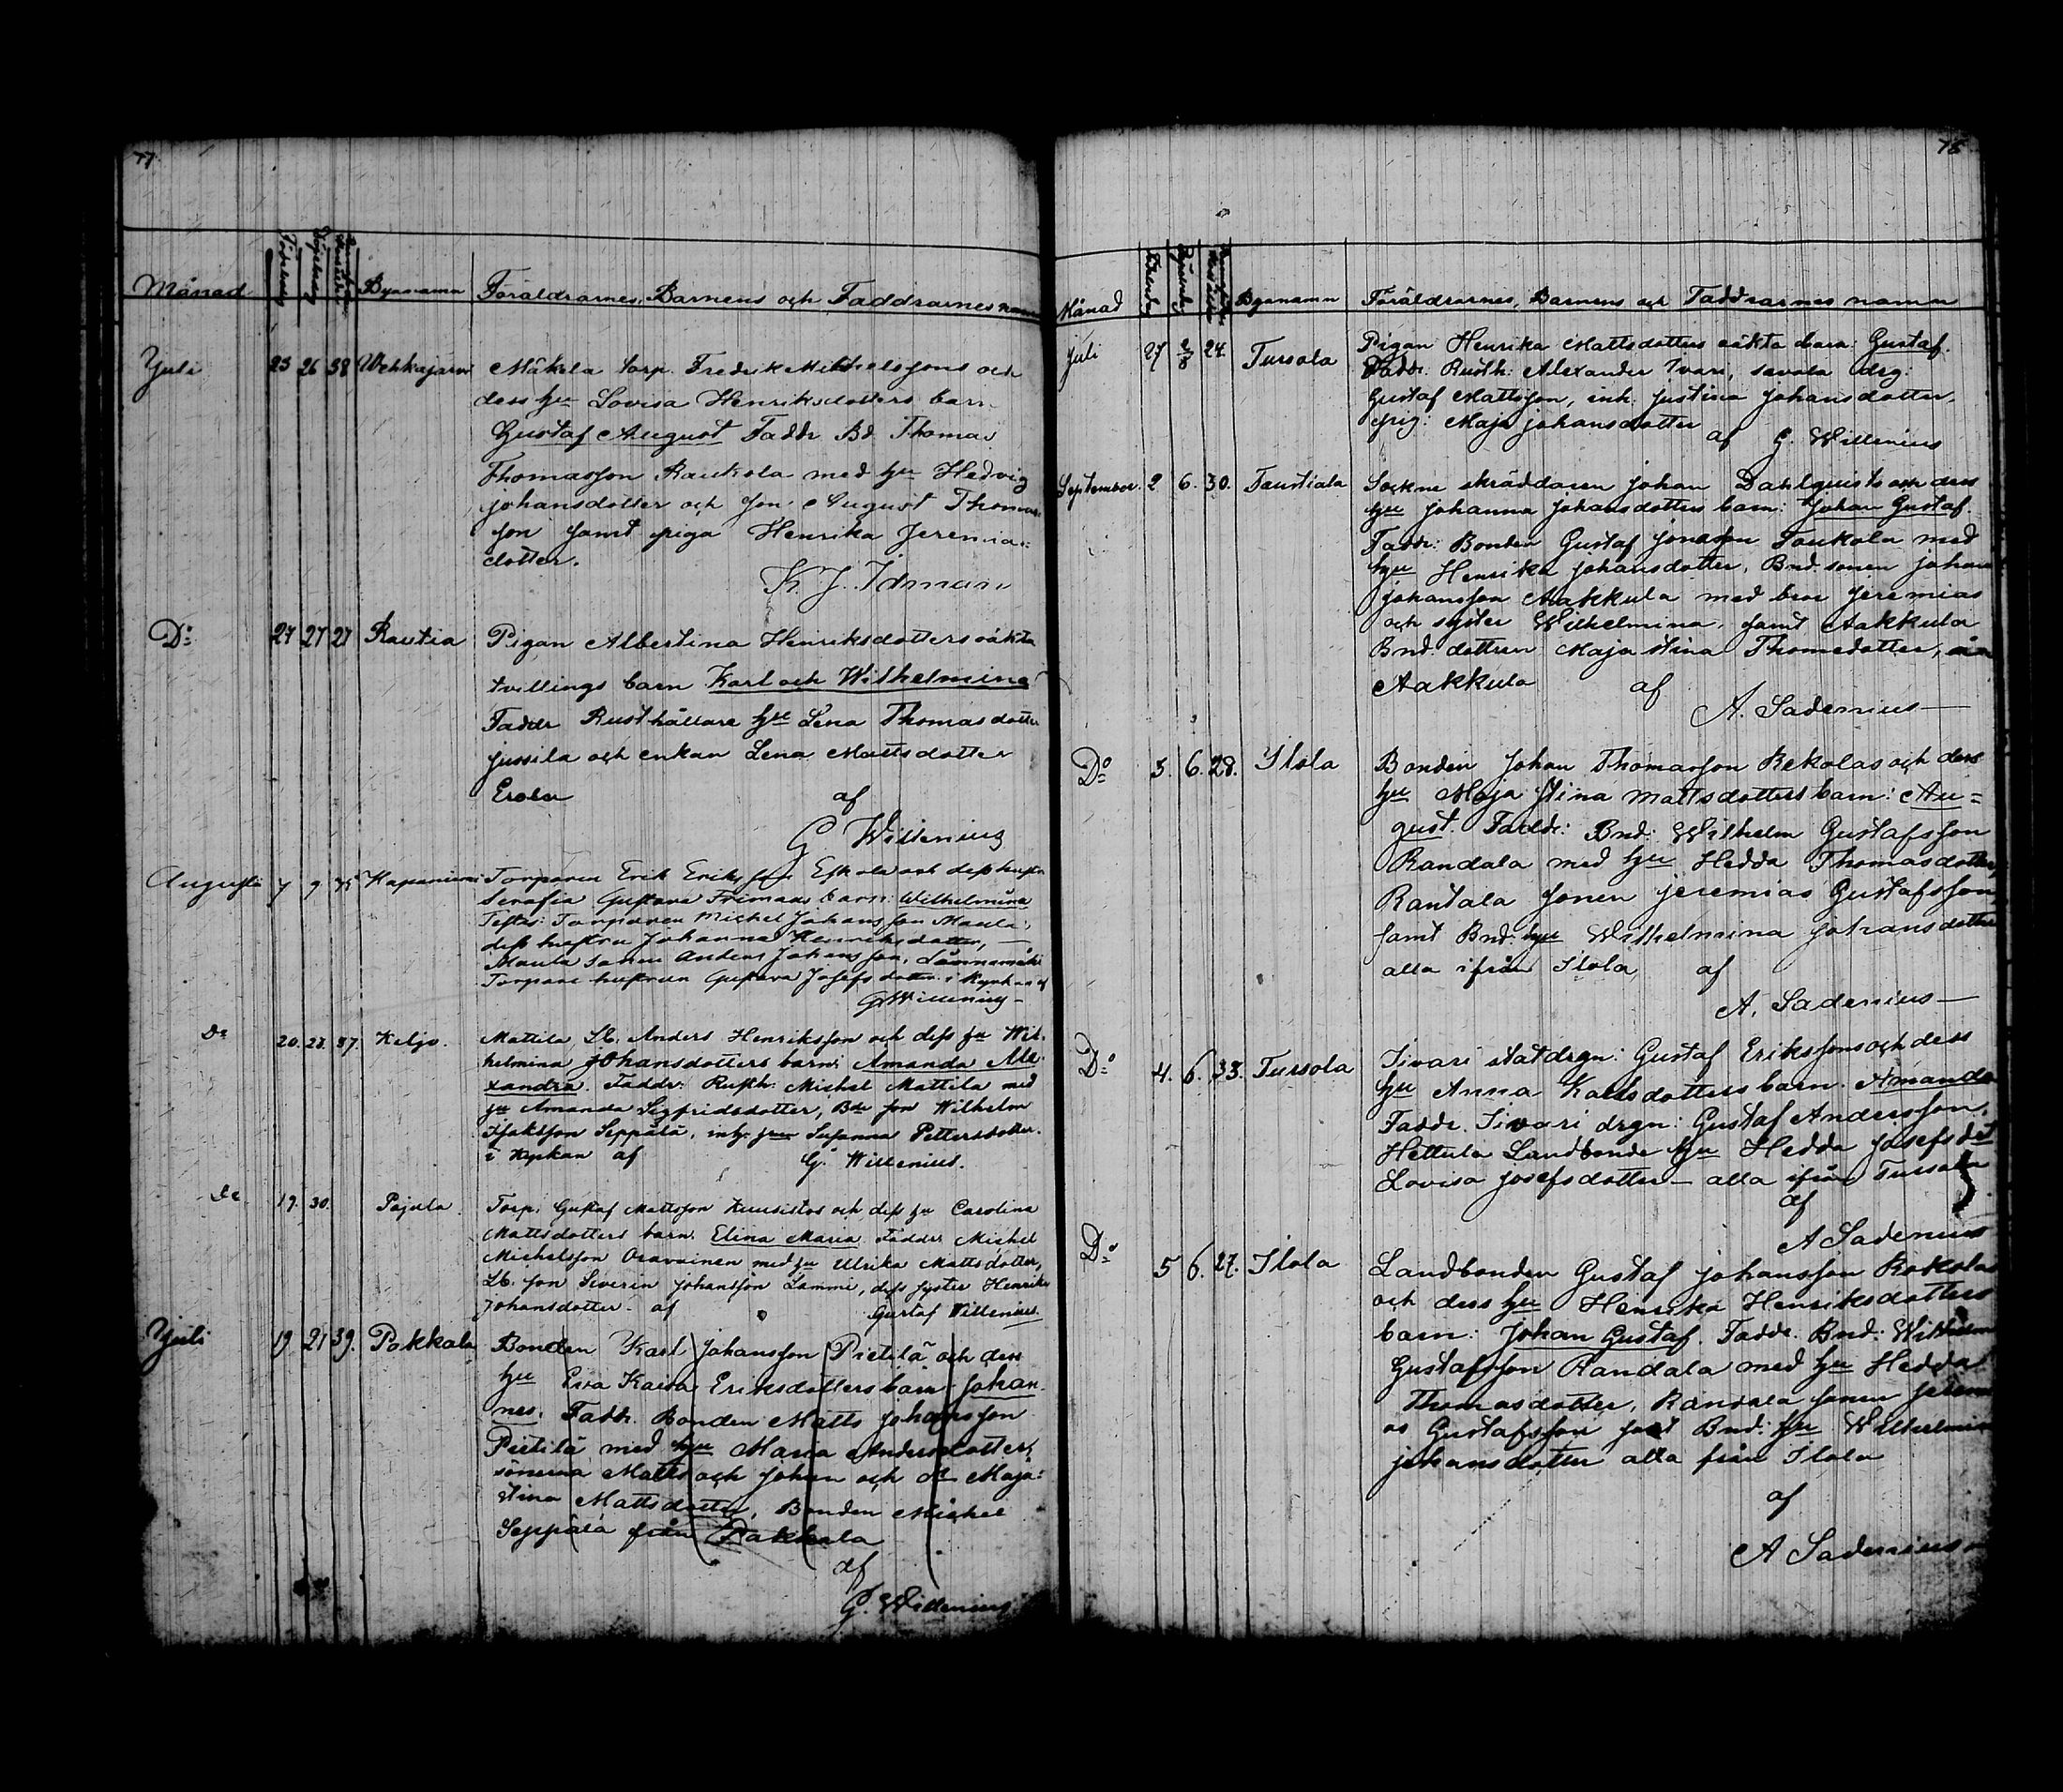 77
Månad Födelsedag Döpelsedag Byanamn Föräldrarnes, Barnens och Faddrarnes namn
Juli 23 26 38 Wehkajärvi Mäkela torp. Fredrik Michelssons och
dess hu Lovisa Henriksdotters barn
Gustaf August Faddr Bd Thomas
Thomasson Raukola med hu Hedvig
Johansdotter och son August Thomas
son samt piga Henrika Jeremias
dotter.
K. J. Idman
Do 27 27 27 Rautia Pigan Albertina Henriksdotters oäkta
tvillings barn Karl och Wilhelmina
Faddr Rusthållare hu Lena Thomasdotter
Jussila och enkan Lena Mattsdotter
Erola af
G Willenius
Augusti 7 9 35 Haponiemi Torparen Erik Eriksson Eskola och dess hustru
Serafia Gustava Frimans barn: Wilhelmina
Testes: Torparen Michel Johansson Maula,
dess hustru Johanna Henriksdotter,
Maula sonen Anders Johansson,
Torpare hustrun Gustava Josefsdotter i Kyrkan af
G Willenius
Do 20. 23. 37. Keljo. Mattila, Lb. Anders Henriksson och dess hu Wil-
helmina Johansdotters barn: Amanda Ale-
xandra. Faddr: Rusth. Michel Mattila med
hu Amanda Sigfridsdotter, Bde son Wilhelm
Isaksson Seppälä, inh. Susanna Pettersdotter.
i Kyrkan af G. Willenius.
De 19. 30. Pajula. Torp. Gustaf Mattsson Kuusistos och dess hu Carolina
Mattsdotters barn: Elina Maria. Faddr Michel
Michelsson Oravainen med hu Ulrika Mattsdotter,
Lb. son Severin Johansson Lammi, dess syster Henrika
Johansdotter - af Gustaf Willenius
Juli 19 21 39. Pakkala Bonden Karl Johansson Pietilä och dess
hu Eva Kaisa Eriksdotters barn Johan-
nes. Faddr. Bonden Matts Johansson
Pietilä med hu Maria Andersdotter,
sönerna Matts och Johan och dr Maja
Stina Mattsdotter, Bonden Michel
Seppälä från Pakkala
af
G. Willenius
78
Månad Födelsedag Döpelsedag Byanamn Föräldrarnes, Barnens och Faddrarnes namn
Juli 27 2/8 24. Tursola Pigan Henrika Mattsdotters oäkta barn: Gustaf.
Faddr. Rusth: Alexander Ivari, savola drg:
Gustaf Mattsson, inh. Justina Johansdotter,
pig: Maja Johansdotter
af G. Willenius
September. 2 6. 30. Taustiala Sockne skräddaren Johan Dahlquists och dess
hu Johanna Johansdotters barn: Johan Gustaf.
Faddr: Bonden Gustaf Jonasson Saukola med
hu Henrika Johansdotter, Bnd. sonen Johan
Johansson Aakkula med bror Jeremias
och syster Wilhelmina, samt Aakkula
Bnd. dottren Maja Stina Thomedotter,
Aakkula af
A. Sadenius
Do 3. 6. 28. Ilola Bonden Johan Thomasson Rekolas och dess
hu Maja Stina Mattsdotters barn: Au=
gust. Faddr: Bnd: Wilhelm Gustafsson
Randala med hu Hedda Thomasdotter,
Rantala sonen Jeremias Gustafsson,
samt Bnd: hu Wilhelmina Johansdotter
alla ifrån Ilola af
A. Sadenius
Do 4. 6. 33. Tursola Iivari statdrgn: Gustaf Erikssons och dess
hu Anna Karlsdotters barn. Amanda
Faddr. Iivari drgn: Gustaf Andersson,
Hettula Landbonde hu Hedda Josefsdot
Lovisa Josefsdotter - alla ifrån Tursola
af
A Sadenius
Do 5 6. 27. Ilola Landbonden Gustaf Johansson Rekolas
och dess hu Henrika Henriksdotters
barn: Johan Gustaf. Faddr. Bnd: Wilhelm
Gustafsson Randala med hu Hedda
Thomasdotter, Randala sonen Jeremi
as Gustafsson samt Bnd: hu Wilhelmina
Johansdotter alla från Ilola
af
A Sadenius